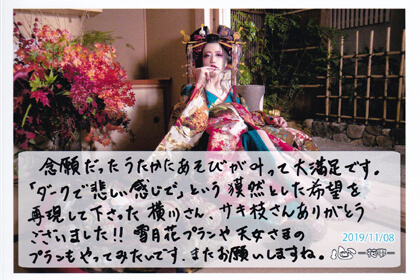 念願だったうたかたあそびが叶って大満足です。
「ダークで悲しい感じで」という漠然とした希望を
再現して下さった横川さん、サキ枝さんありがとう
ございました!!雪月花プランや天女さまの
プランもやってみたいです。またお願いしますね。
2019/11/08
心-花雫-